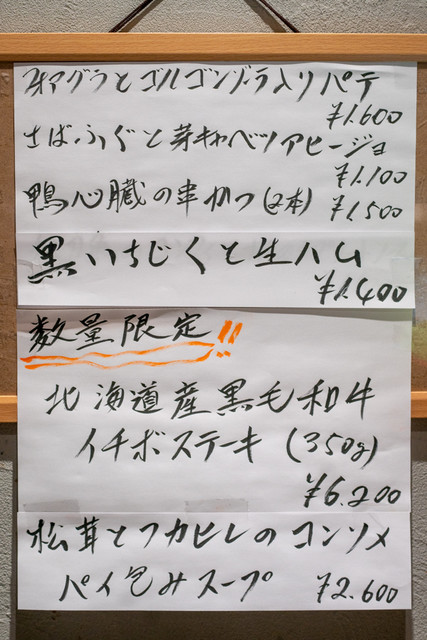 フォアグラとゴルゴンゾーラ入りパテ
¥1.600
さばふぐと芽キャベツアヒージョ
¥1.100
鴨心臓の串かつ(2本) ¥1.500
黒いちじくと生ハム
¥1.400
数量限定!!
北海道産黒毛和牛
イチボステーキ(350g)
¥6.200
松茸とフカヒレのコンソメ
パイ包みスープ ¥2.600